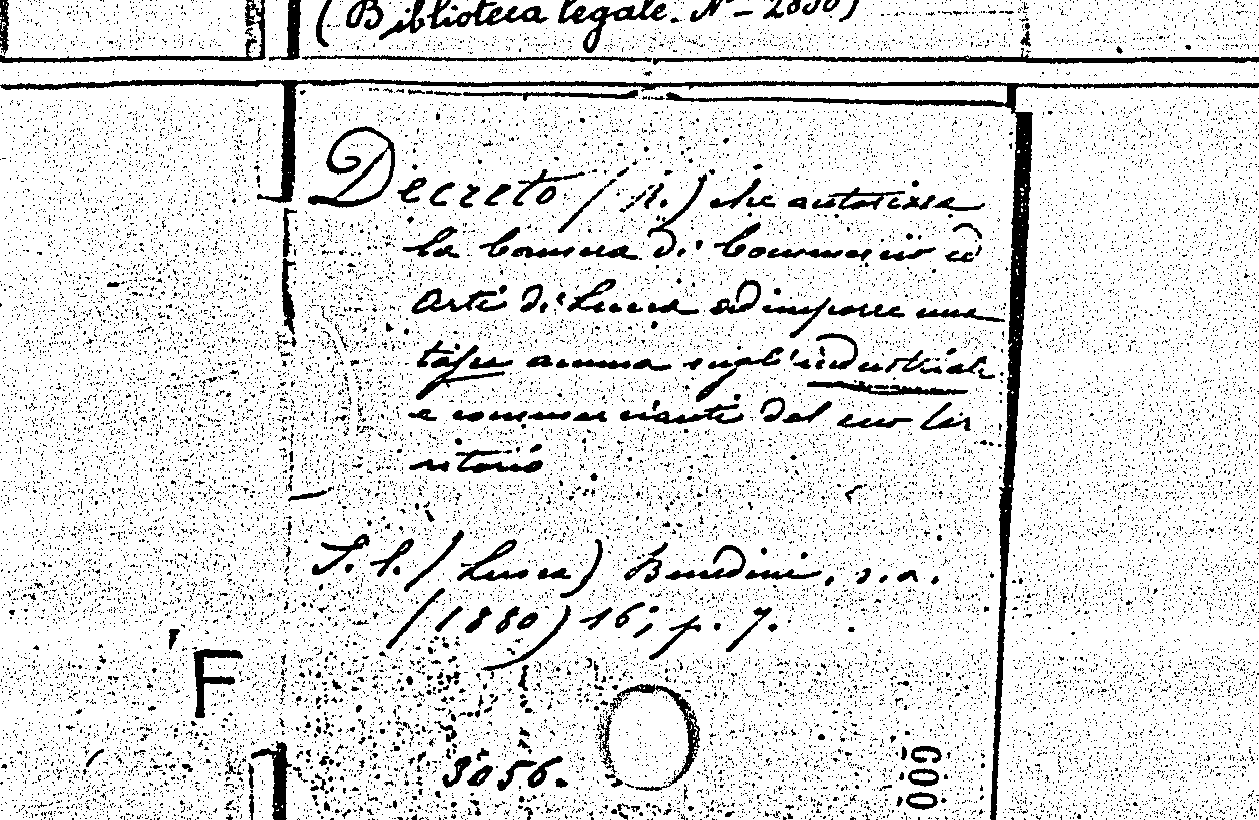 (Biblioteca legale. N° - 2830)
Decreto (R.) che autorizza
la Camera di Commercio ed
Arti di Lucca ad imporre una
tassa annua sugl'industriali
e commercianti del suo ter
ritorio
S. l. (Lucca) Benedini, s. a.
(1880) 16°; p. 7.
F
3056.
600